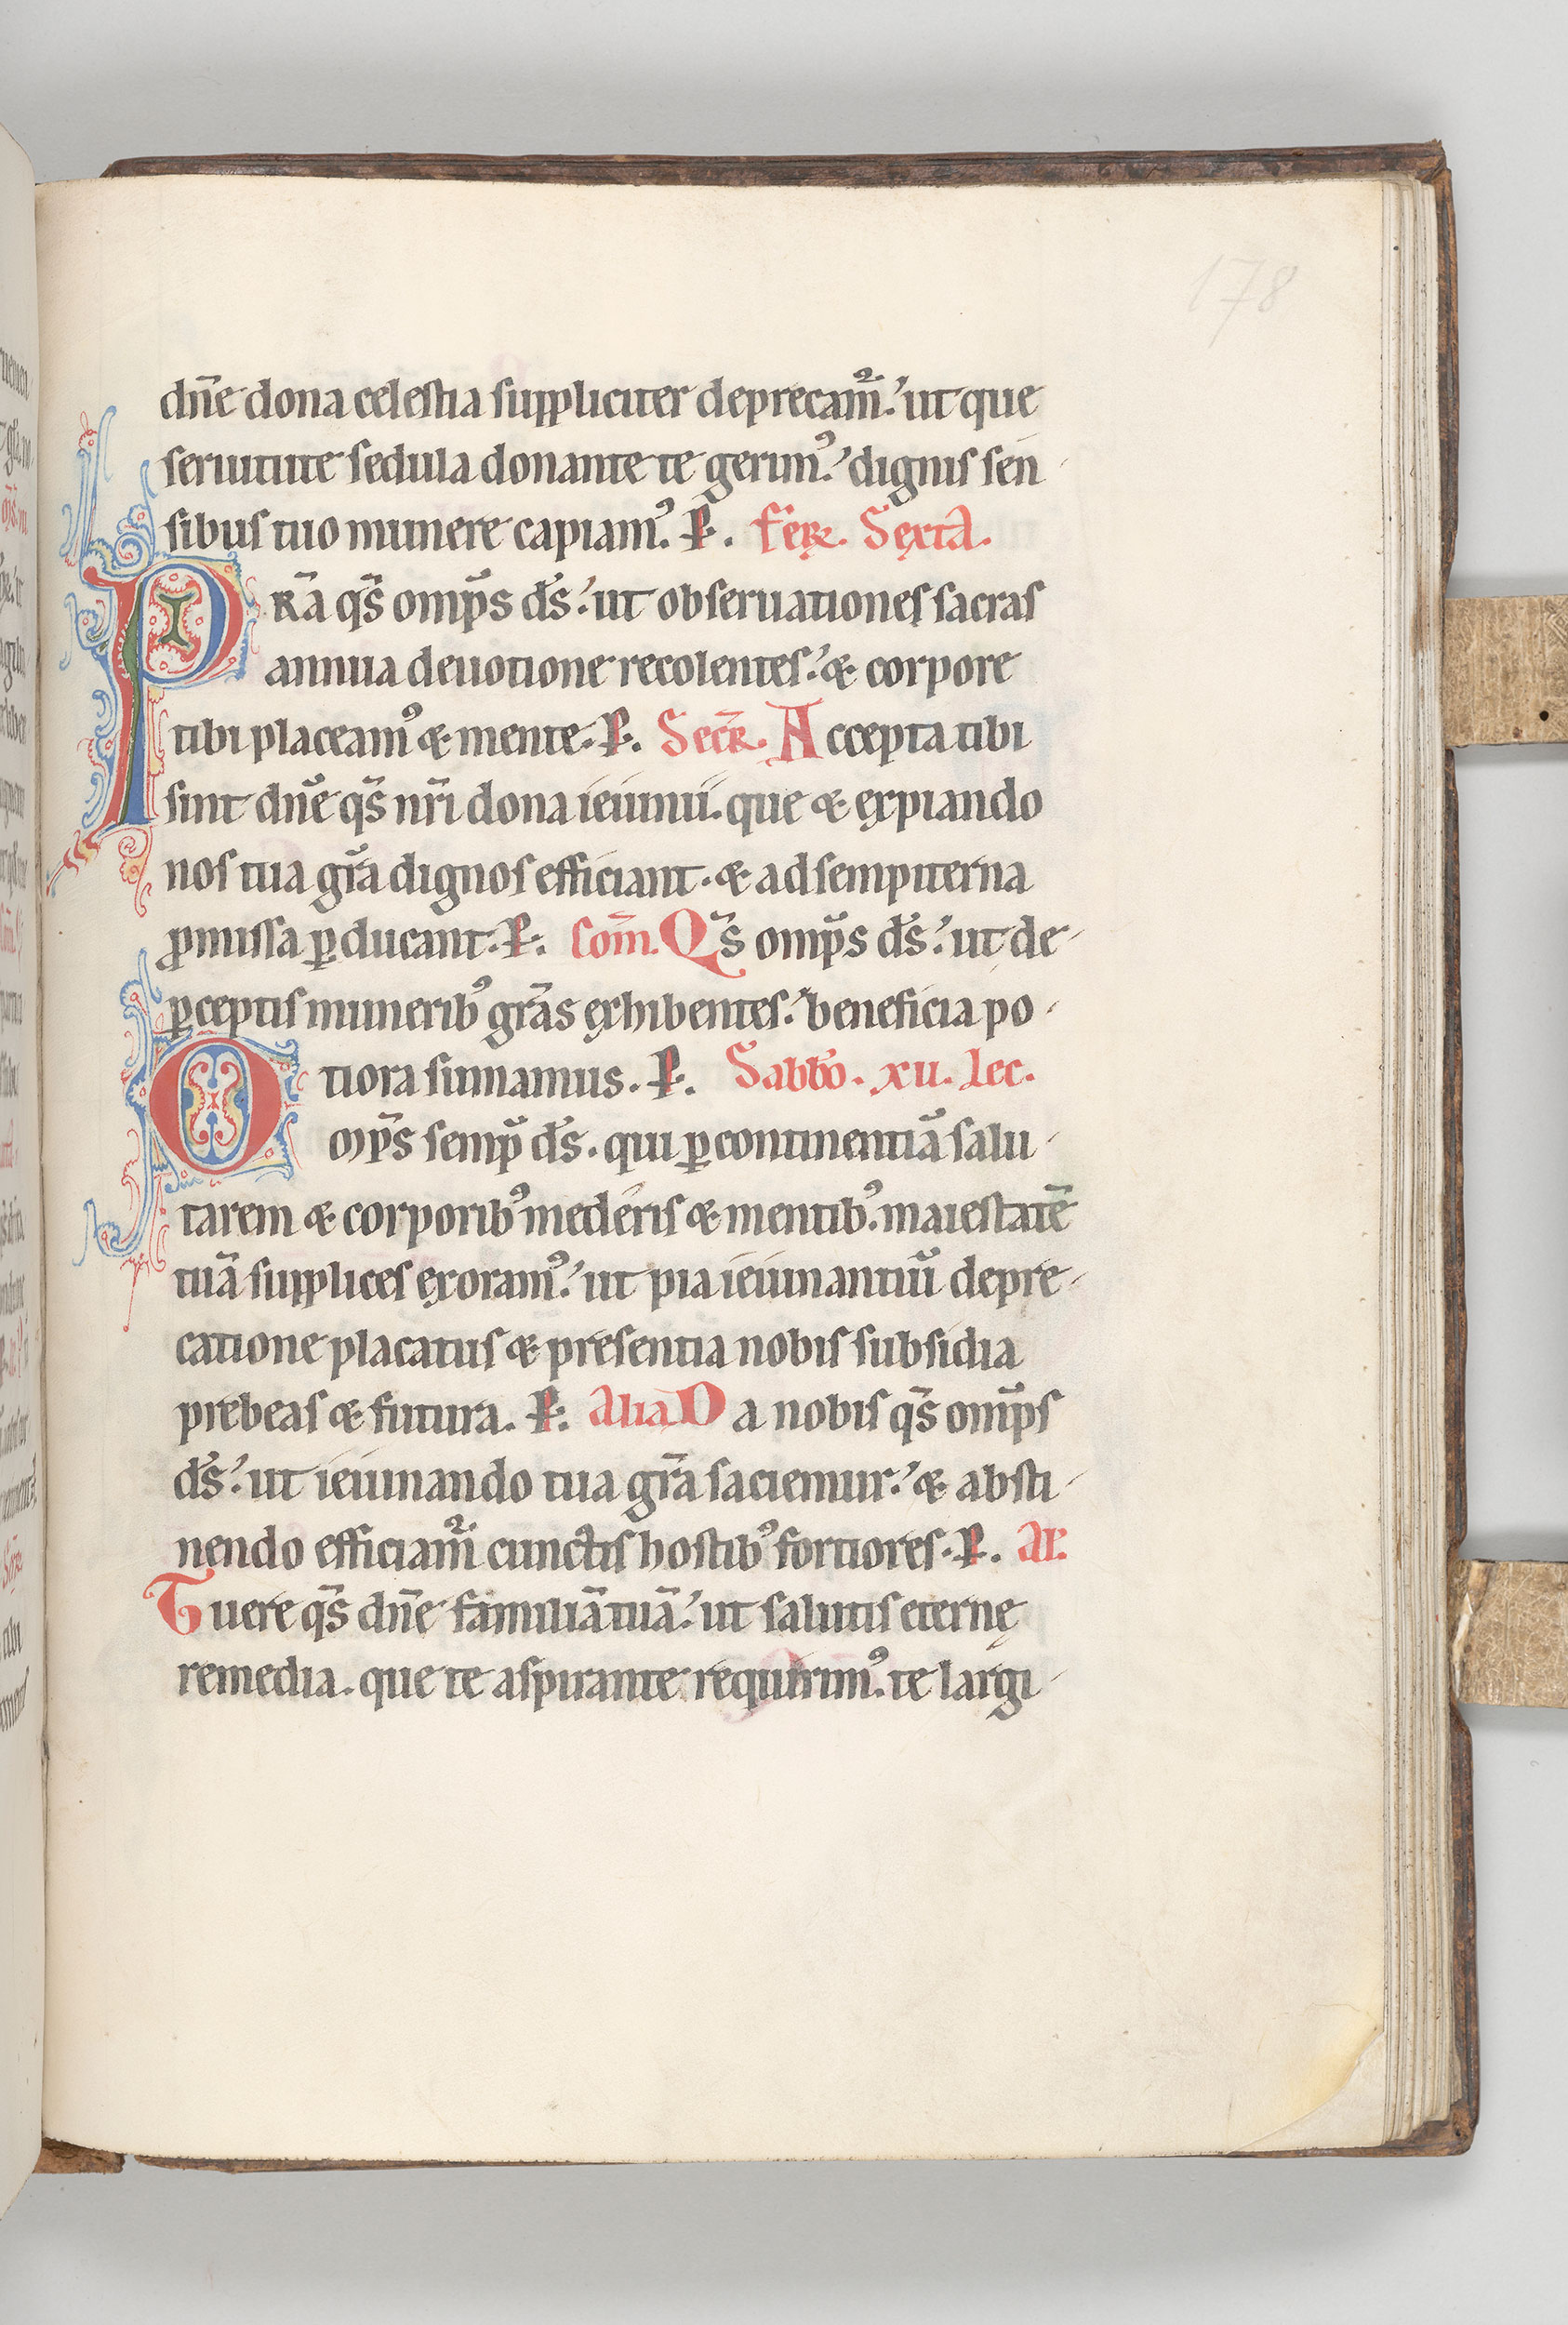 178
dñe dona celestia suppliciter deprecam̃᷒. ut que
seruitute sedula donante te gerim᷒. dignis sen-
sibus tuo munere capiam᷒. P. Fer. Sexta.
PRã qs̃ omp̃s ds̃. ut obseruationes sacras
annua deuotione recolentes. & corpore
tibi placeam᷒ & mente. P. Secr̃. Accepta tibi
sint dñe qs̃ nr̃i dona ieiunii. que & expiando
nos tua gr̃a dignos efficiant. & ad sempiterna
ꝓmissa ꝑducant. P. Com̃. Qs̃ omp̃s ds̃. ut de-
ꝑceptis munerib᷒ gr̃as exhibentes. beneficia po-
tiora sumamus. P. Sabb̃o. xii. lec.
Omp̃s semp̃ ds̃. qui ꝑ continentiã salu-
tarem & corporib᷒ mederis & mentib᷒. maiestatẽ
tuã supplices exoram᷒. ut pia ieiunantiũ depre-
catione placatus & presentia nobis subsidia
prebeas & futura. P. Alia. Da nobis qs̃ omp̃s
ds̃. ut ieiunando tua gr̃a saciemur. & absti-
nendo efficiam᷒ cunctis hostib᷒ fortiores. P. Al.
Tuere qs̃ dñe familiã tuã. ut salutis eternę
remedia. que te aspirante requirim᷒. te largi-